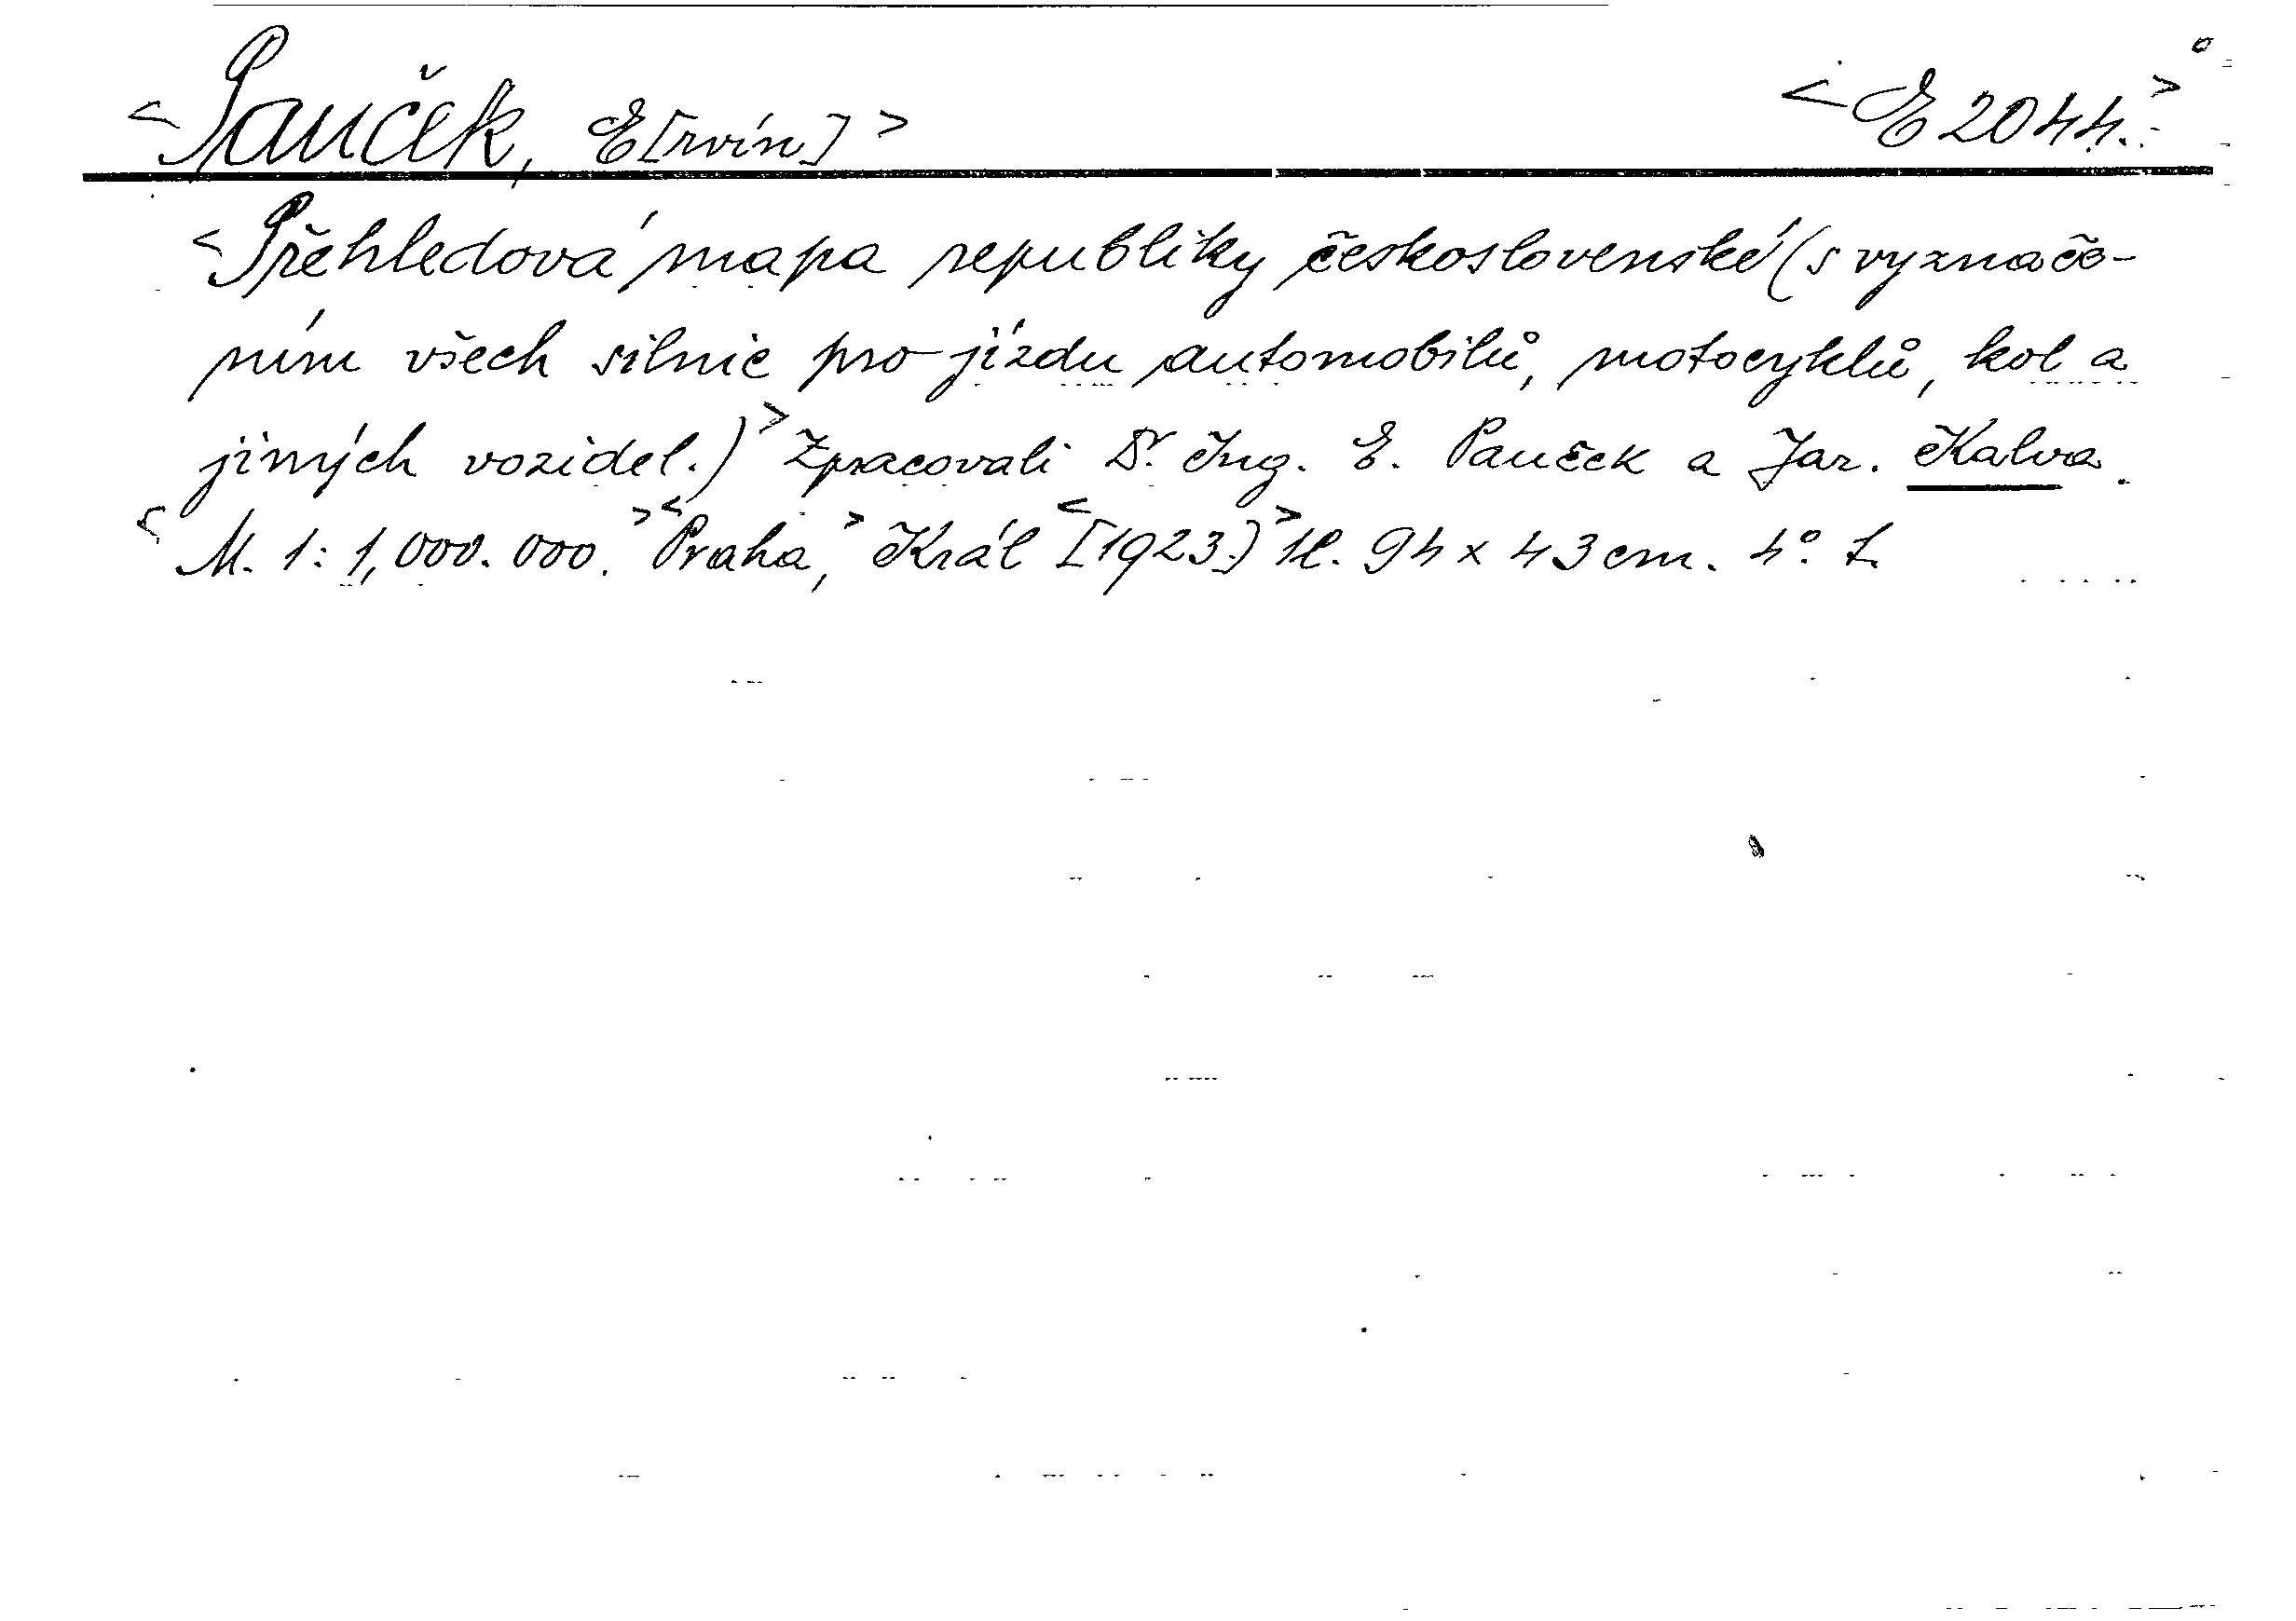 <Pauček, E[rvín]> <E 2044.>
<Přehledová mapa republiky československé (s vyznače-
ním všech silnic pro jízdu automobilů, motocyklů, kol a
jiných vozidel.)> Zpracovali Dr. Ing. E. Pauček a Jar. Kalva.
<M. 1:1,000.000.> <Praha,> Král <[1923.]> 1l. 94 x 43 cm. 4°.